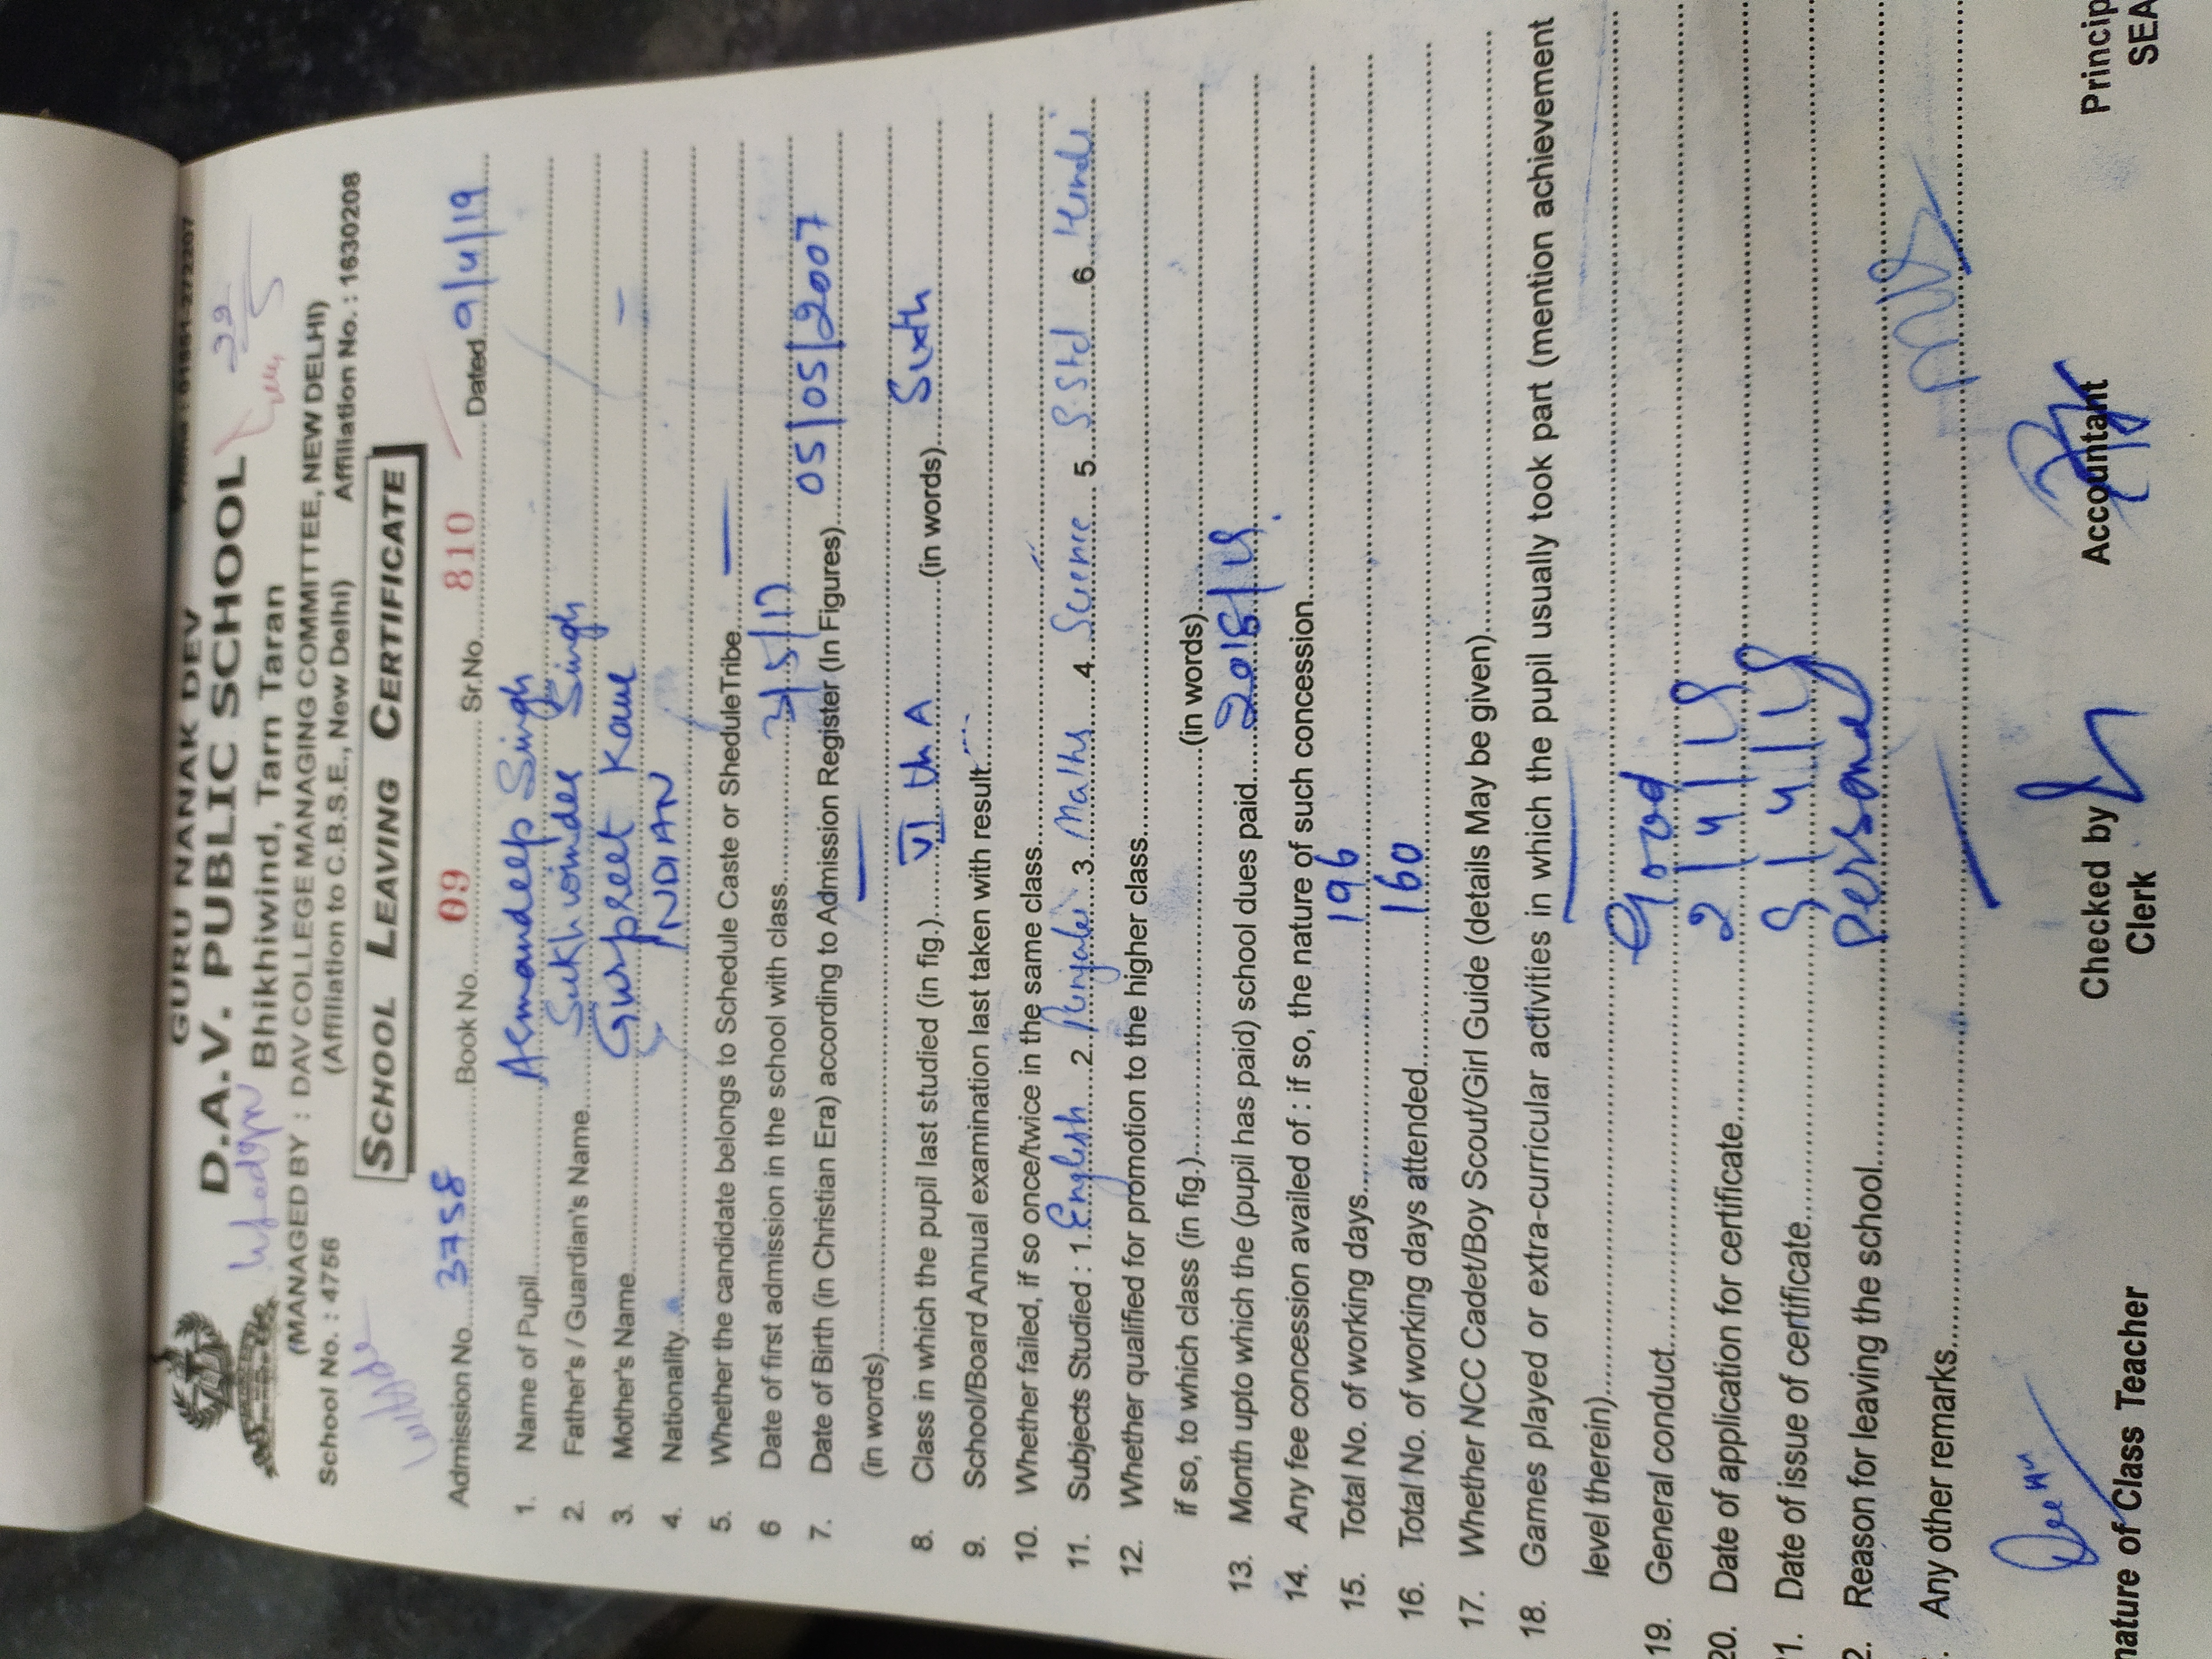 GURU NANAK DEV
D.A.V. PUBLIC SCHOOL
Bhikhiwind, Tarn Taran
(MANAGED BY : DAV COLLEGE MANAGING COMMITTEE, NEW DELHI)
School No. : 4756 (Affiliation to C.B.S.E., New Delhi) Affiliation No. : 1630208
SCHOOL LEAVING CERTIFICATE
Admission No. 3758 Book No. 09 Sr.No. 810 Dated 9/4/19
1. Name of Pupil Armandeep Singh
2. Father's / Guardian's Name Sukhwinder Singh
3. Mother's Name Gurpreet Kaur
4. Nationality INDIAN
5. Whether the candidate belongs to Schedule Caste or SheduleTribe —
6 Date of first admission in the school with class 3/5/17
7. Date of Birth (in Christian Era) according to Admission Register (In Figures) 05/05/2007
(in words) —
8. Class in which the pupil last studied (in fig.) VI th A (in words) Sixth
9. School/Board Annual examination last taken with result
10. Whether failed, if so once/twice in the same class
11. Subjects Studied : 1. English 2. Punjabi 3. Maths 4. Science 5. S.Std 6. Hindi
12. Whether qualified for promotion to the higher class
if so, to which class (in fig.) (in words)
13. Month upto which the (pupil has paid) school dues paid 2018/19
14. Any fee concession availed of : if so, the nature of such concession
15. Total No. of working days 196
16. Total No. of working days attended 160
17. Whether NCC Cadet/Boy Scout/Girl Guide (details May be given)
18. Games played or extra-curricular activities in which the pupil usually took part (mention achievement
level therein)
19. General conduct Good
20. Date of application for certificate 2/4/19
1. Date of issue of certificate 9/4/19
2. Reason for leaving the school Personal
Any other remarks
nature of Class Teacher Checked by Accountant Princip
Clerk SEA